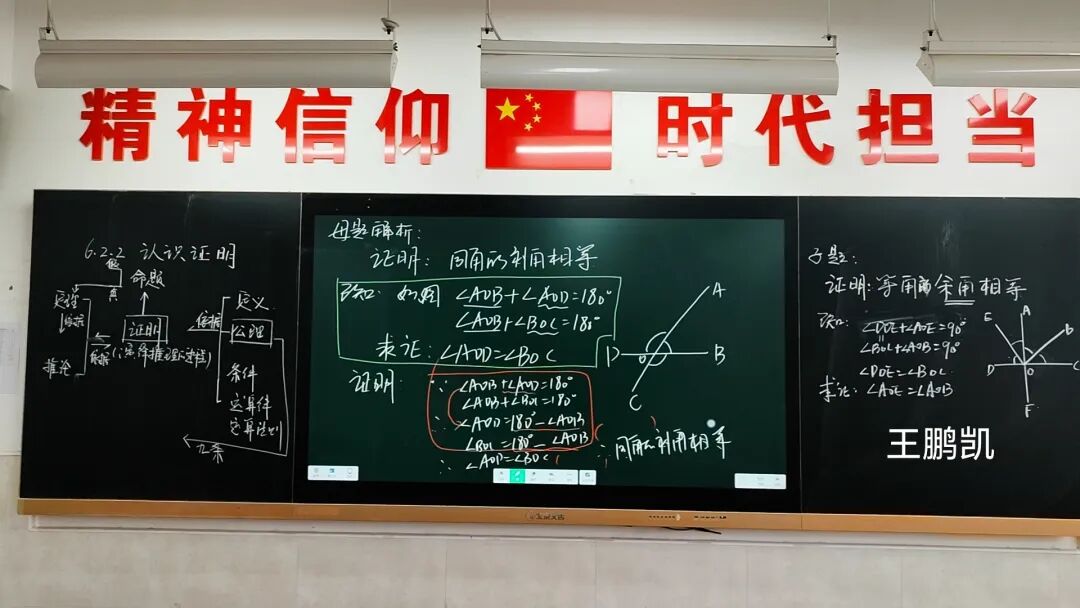 精神信仰 时代担当
6.2.2 认识证明
命题
证明
推论
依据
定义
公理
条件
运算律
运算法则
九条
母题解析:
证明: 同角的补角相等
已知: 如图 ∠AOB+∠AOD=180°
∠AOB+∠BOC=180°
求证: ∠AOD=∠BOC
证明:
∵ ∠AOB+∠AOD=180°
∠AOB+∠BOC=180°
∴ ∠AOD=180°-∠AOB
∠BOC=180°-∠AOB
∴ ∠AOD=∠BOC
∴ 同角的补角相等
A
D O B
C
子题:
证明: 等角的余角相等
已知: ∠DOE+∠AOE=90°
∠BOC+∠AOB=90°
∠DOE=∠BOC
求证: ∠AOE=∠AOB
E A B
D O C
F
王鹏凯